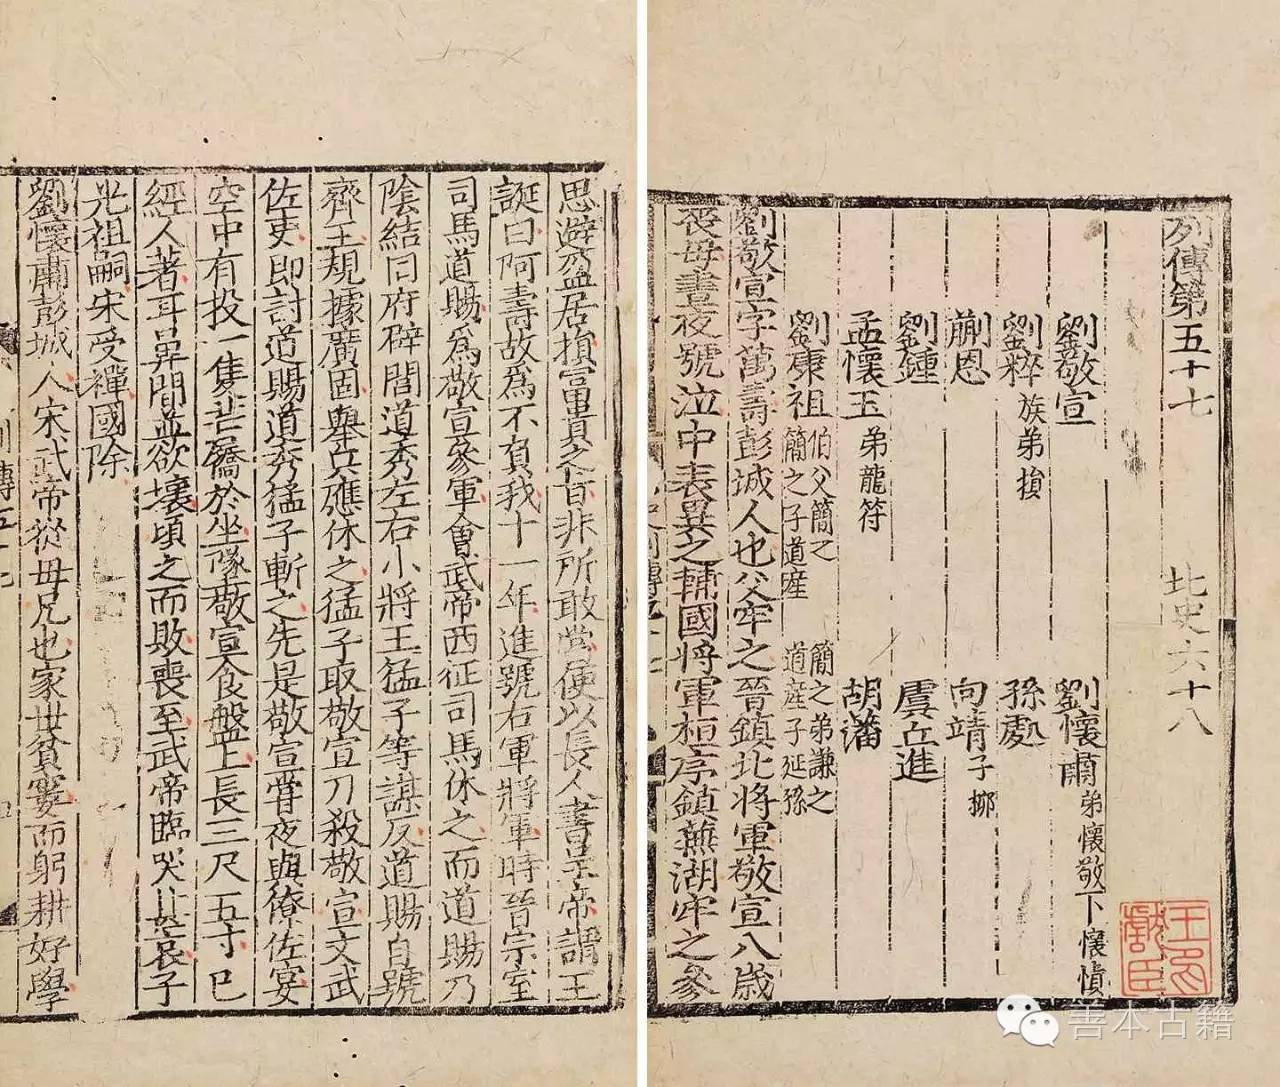 列傳第五十七 北史六十八
劉敬宣 劉懷肅弟懷敬下懷慎
劉粹族弟損 孫處
蒯恩 向靖子柳
劉鍾 虞丘進
孟懷玉弟龍符 胡藩
劉康祖伯父簡之 簡之弟謙之
簡之子道産 道産子延孫
劉敬宣字萬壽彭城人也父牢之晉鎮北將軍敬宣八歲
喪母晝夜號泣中表異之輔國將軍桓序鎮蕪湖牢之參
思避盈居損富貴之旨非所敢當便以長人書呈帝謂王
誕曰阿壽故爲不負我十一年進號右軍將軍時晉宗室
司馬道賜爲敬宣參軍會武帝西征司馬休之而道賜乃
陰結同府辟閭道秀左右小將王猛子等謀反道賜自號
齊王規據廣固舉兵應休之猛子取敬宣刀殺敬宣文武
佐吏即討道賜道秀猛子斬之先是敬宣嘗夜與僚佐宴
空中有投一隻芒屩於坐隊敬宣食盤上長三尺五寸巳
經人著耳鼻間並欲壞頃之而敗喪至武帝臨哭甚哀子
光祖嗣宋受禪國除
劉懷肅彭城人宋武帝從母兄也家世貧窶而躬耕好學
善本古籍